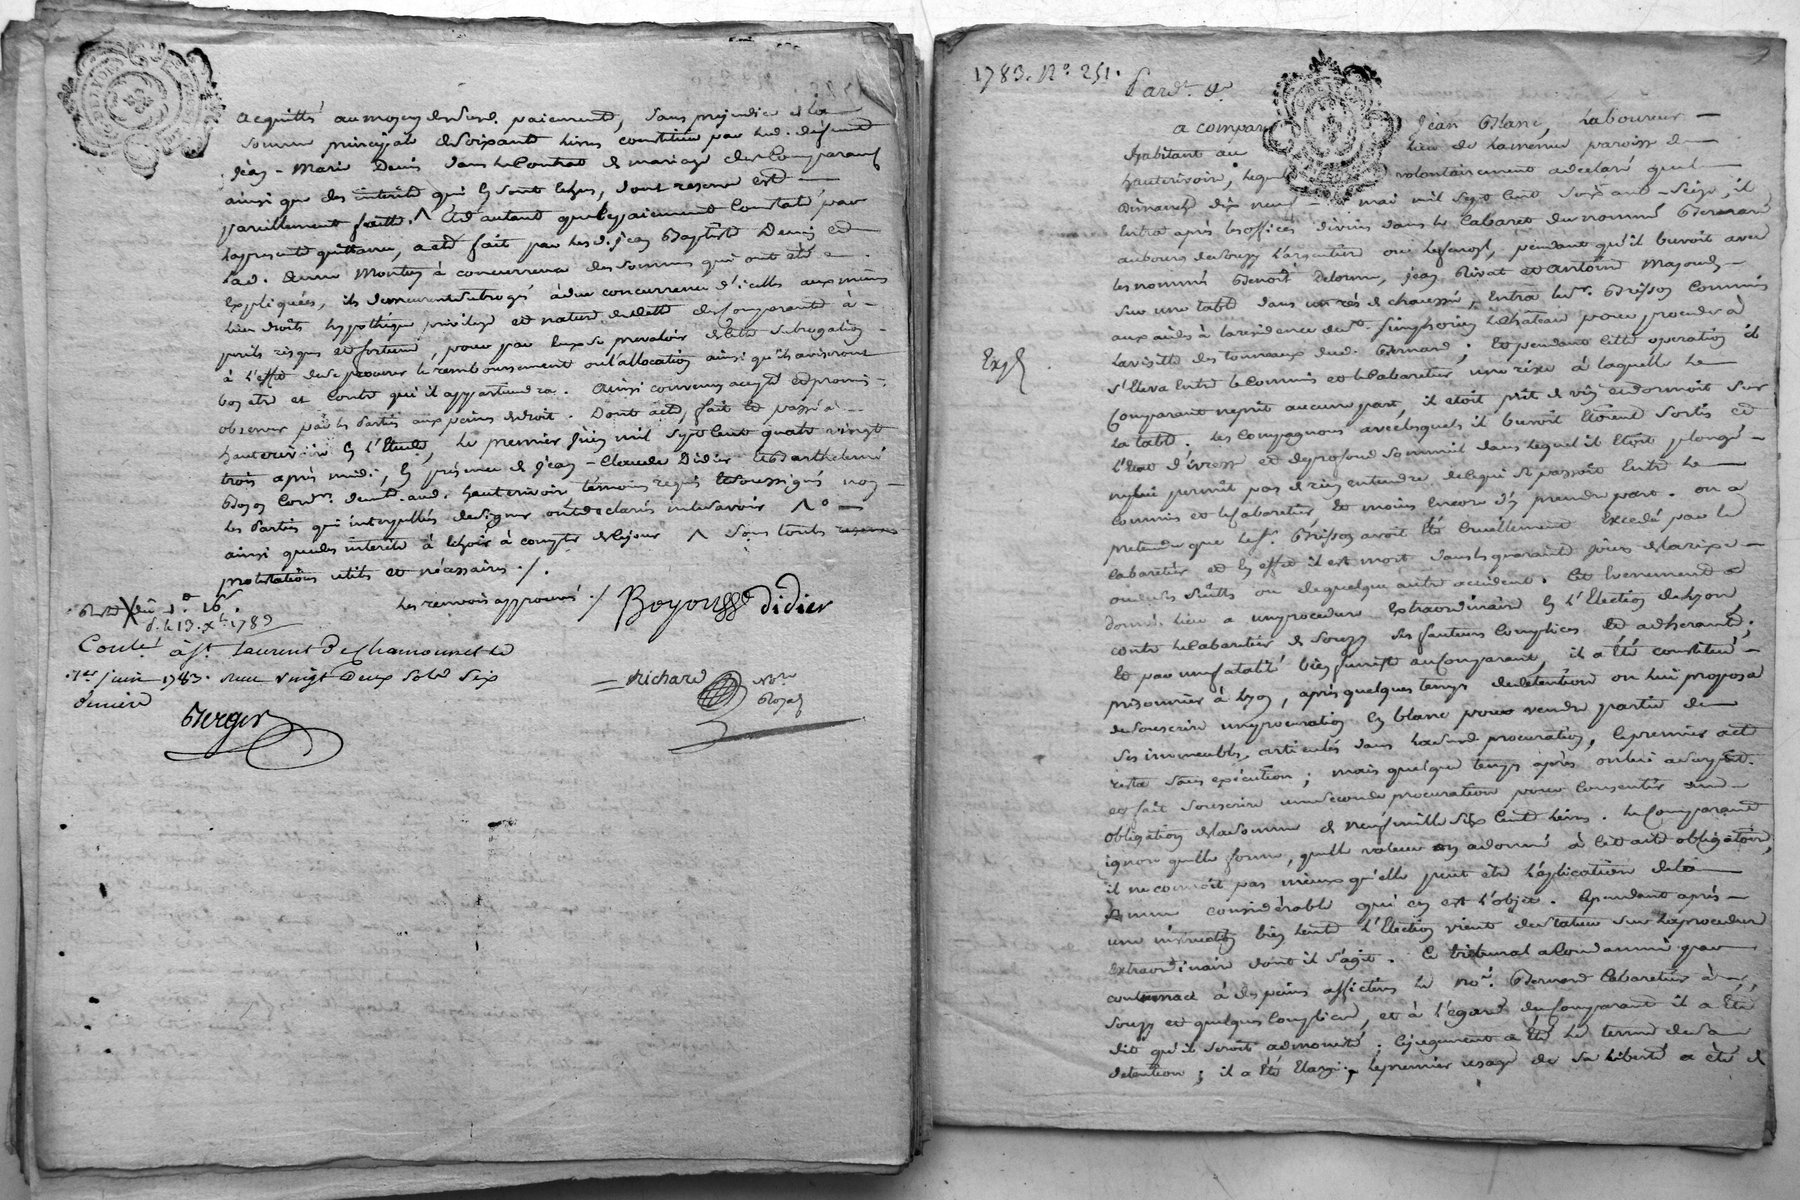 acquittés au moyen dud. paiement, sans prejudice de la
somme principale de soixante livres constituée par led. défunt
Jean-Marie Denis dans le Contrat de mariage du Comparant
ainsi que des interêts qui en sont échus, dont reserve est
pareillement faitte. ^ Et d'autant que le paiement constaté par
la presente quittance, a été fait par lesd. Jean Baptiste Denis et
lad. à concurrence des sommes qui ont été
expliquées, ils demeurent subrogés à due concurrence d'icelles aux mêmes
lieu droits hypothéque privilege et nature de dette du Comparant à
perils risques et fortune, pour par eux se prevaloir de cette subrogation
à l'effet de se procurer le remboursement ou l'allocation ainsi qu'ils aviseront
bon être et contre qui il appartiendra. Ainsi convenu accepté et promis
observer par les parties aux peines de droit. Dont acte, fait et passé à
hauterivoire en l'Etude, le premier Juin mil sept cent quatre vingt
trois après midi, en présence de Jean-Claude Didier et Barthelemi
demt. aud. hauterivoire témoins requis et soussignés non
les Parties qui interpellées de signer ont déclarés ne le savoir ^ o
ainsi que des interêts à échoir à compter de ce jour ^ sous toutes reserves
protestations utiles et nécessaires ./.
les renvois approuvés ./ Boyousse Didier
d. le 13. Xbre 1789
Conlé à St. Laurent De Chamousset le
7er juin 1783. Reçu vingt Deux Sols Six
deniers
Richard Nore Royal
Berger
1783. No. 251.
Pardt. &
a comparu Jean Blanc, Laboureur
habitant au lieu de paroisse de
hauterivoire, lequel volontairement a declaré que le
Dimanche dix neuf mai mil sept cent soixante-seize, il
entra après les offices divins dans le Cabaret du nommé Bernard
au bourg de Souzy l'argentiere ou le pendant qu'il buvoit avec
les nommés Benoît Delorme, Jean Rivat et Antoine
sur une table dans un rés de chaussée, entra le Sr. Brisson Commis
aux aides à la residence de St. Simphorien le château pour proceder à
la visitte des tonneaux dud. Bernard ; Et pendant cette operation il
s'eleva entre le Commis et le Cabaretier une rixe à laquelle le
Exp.
Comparant ne prit aucune part, il etoit pris de vin et dormoit sur
la table. les Compagnons avec lesquels il buvoit etoient sortis et
l'Etat d'ivresse et de profond sommeil dans lequel il etoit plongé
ne lui permit pas de rien entendre de ce qui se passoit entre le
commis et le Cabaretier et moins encore d'y prendre part. on a
pretendu que le Sr. Brisson avoit été cruellement excedé par le
Cabaretier et en effet il est mort dans les quarante jours de la rixe
ou de ses suites ou de quelque autre accident. Cet Evenement a
donné lieu a une procedure extraordinaire en l'Election de Lyon
contre le Cabaretier de Souzy ses fauteurs complices et adherants ;
Et par une fatalité bien funeste au Comparant, il a été constitué
prisonnier à Lyon, après quelques temps de detention on lui proposa
de souscrire une procuration en blanc pour vendre partie de
ses immeubles articulés dans lad. procuration, le premier acte
resta sans exécution ; mais quelque temps après on lui a
et fait souscrire une seconde procuration pour consentir une
obligation de la somme de neuf mille six cent livres. le Comparant
ignore quelle forme, quelle valeur on a donné à cet acte obligatoire,
il ne connoit pas mieux qu'elle peut être l'aplication de la
somme considérable qui en est l'objet. Cependant après
une instruction bien lente l'Election vient de statuer sur la procedure
extraordinaire dont il s'agit. Ce tribunal a condamné par
contumace à des peines afflictives le no.é Bernard Cabaretier à
Souzy et quelques complices, et à l'égard du Comparant il a été
dit qu'il seroit admonété ; Ce jugement a été le terme de sa
detention ; il a été Elargi, le premier usage de sa liberté a été de